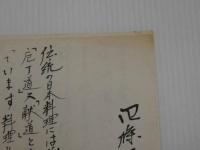 四條
伝統の日本料理には
「庖丁道」又「献道」と
ています 料理